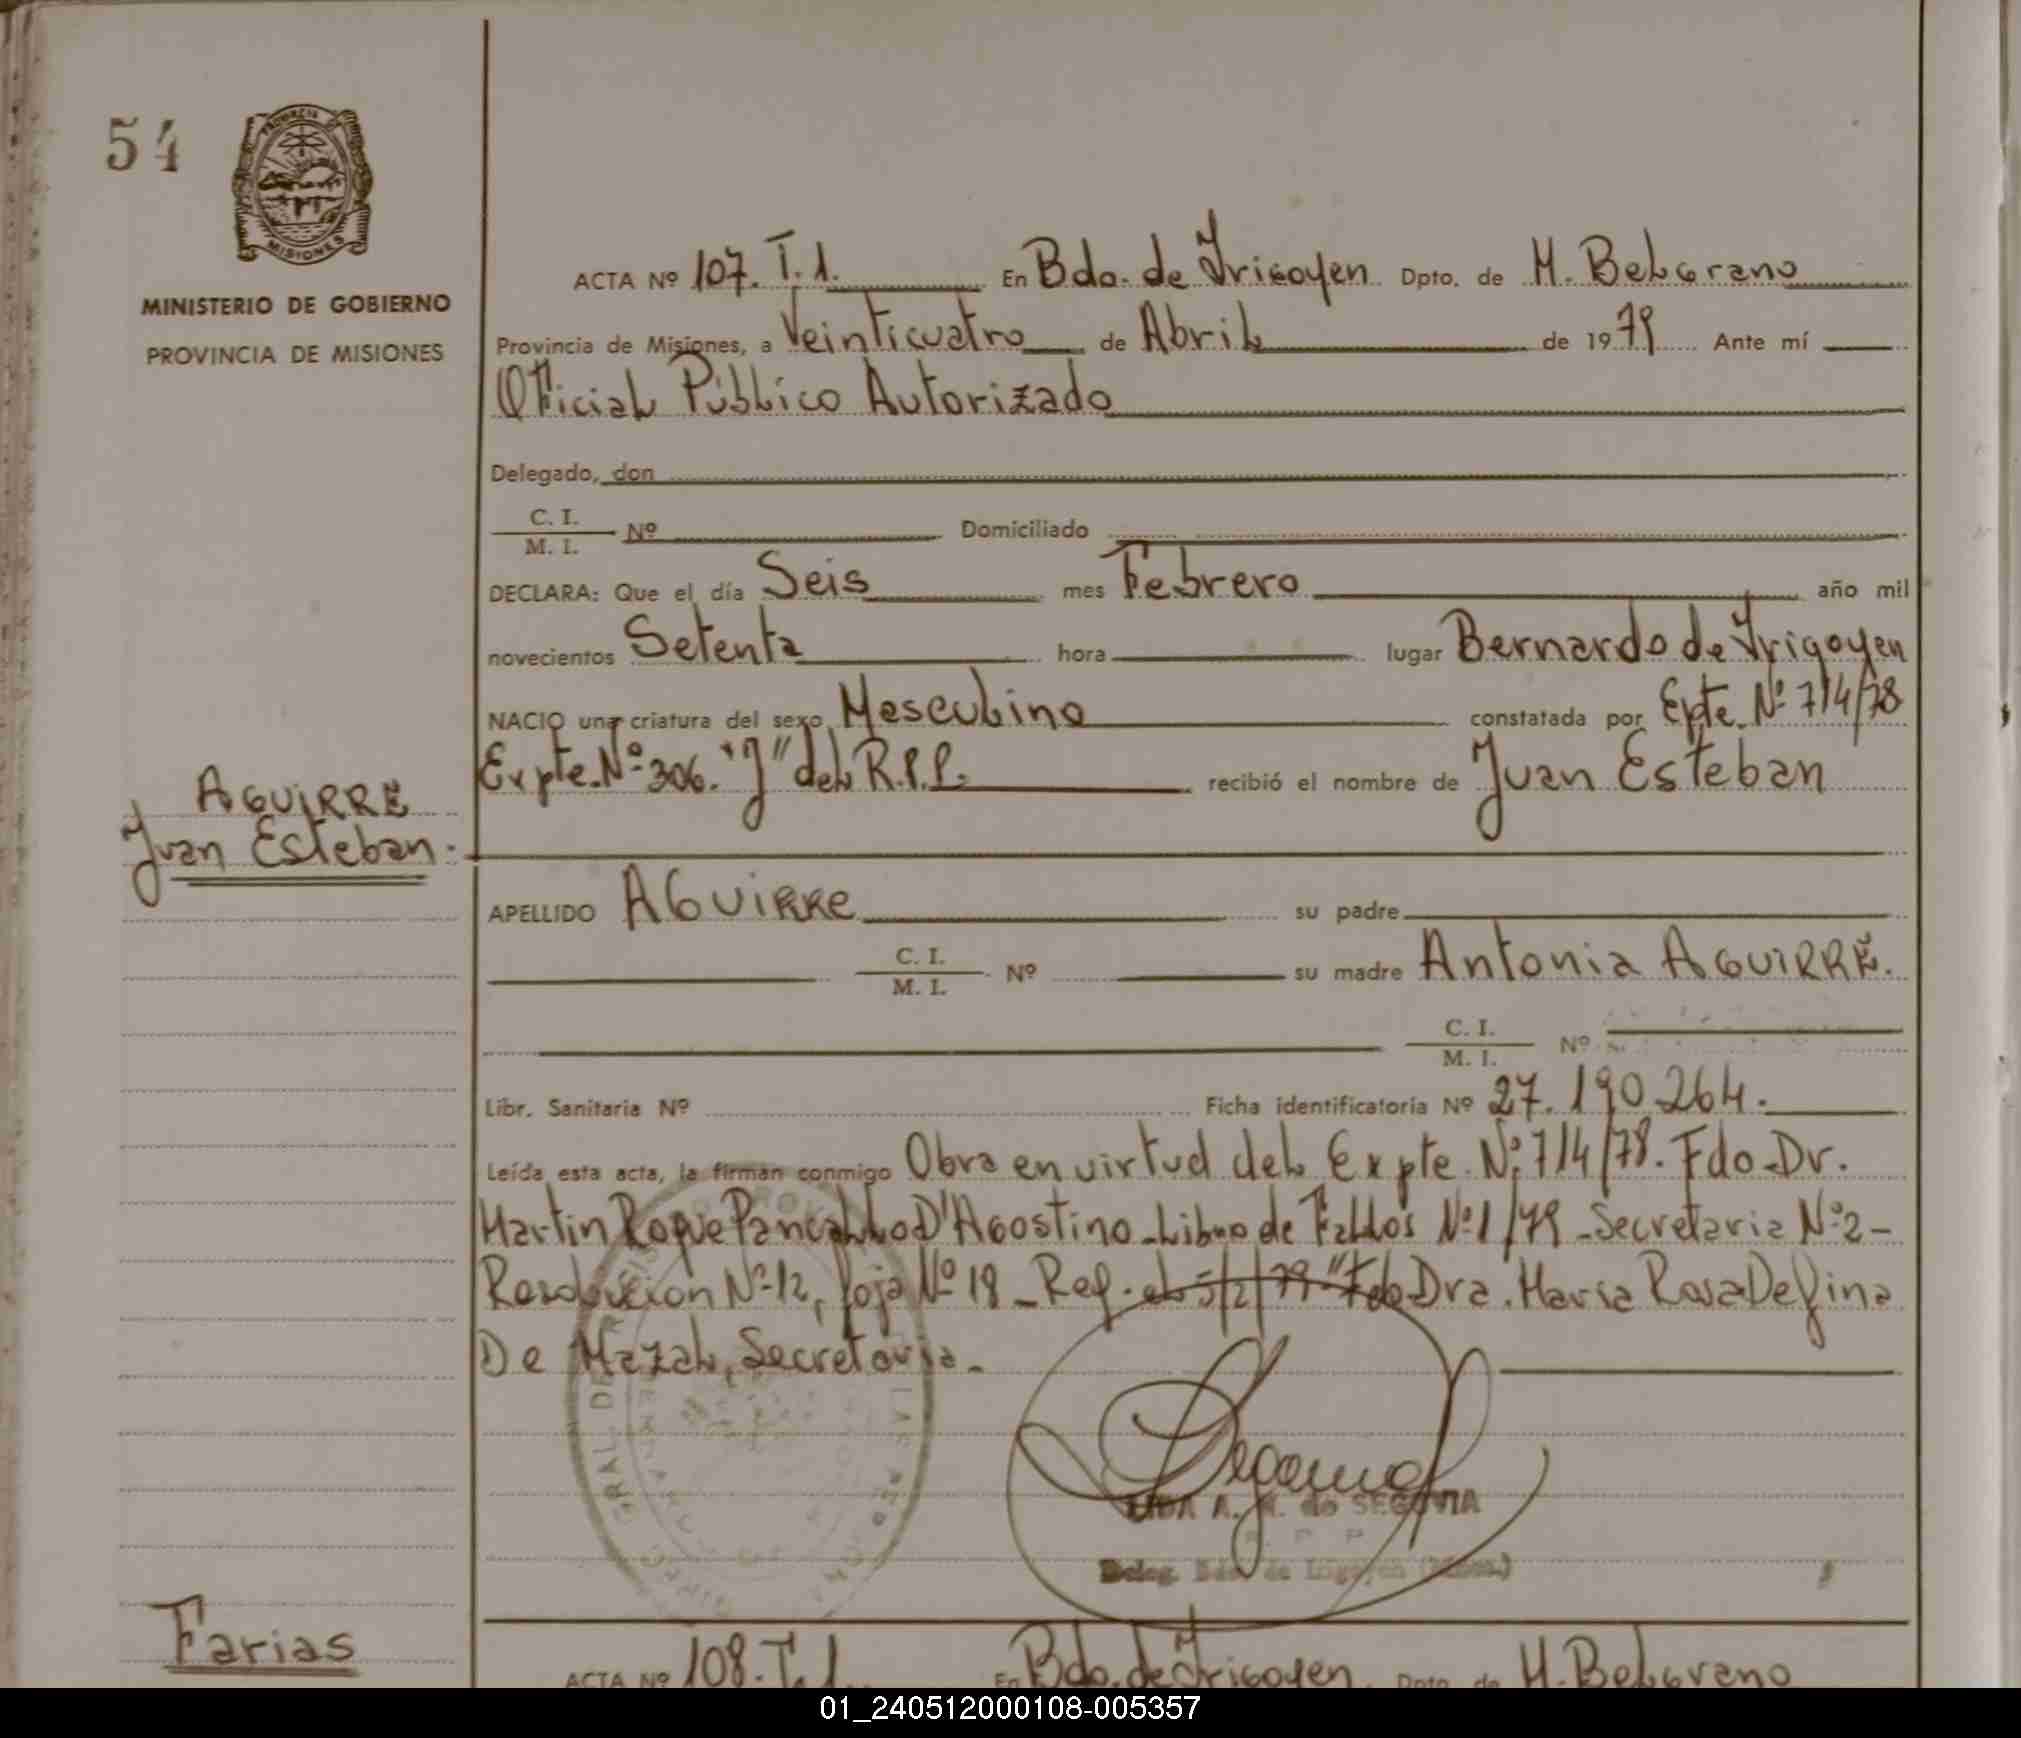 54
PROVINCIA DE
MISIONES
MINISTERIO DE GOBIERNO
PROVINCIA DE MISIONES
ACTA Nº 107. T. 1. En Bdo. de Irigoyen Dpto. de M. Belgrano
Provincia de Misiones, a Veinticuatro de Abril de 1979 Ante mí
Oficial Público Autorizado
Delegado, don
C. I.
M. I. Nº Domiciliado
DECLARA: Que el día Seis mes Febrero año mil
novecientos Setenta hora lugar Bernardo de Irigoyen
NACIO una criatura del sexo Masculino constatada por Expte. Nº 714/78
Expte. Nº 306. "J" del R.P.P. recibió el nombre de Juan Esteban
AGUIRRE
Juan Esteban.
APELLIDO AGUIRRE su padre
C. I.
M. I. Nº su madre Antonia AGUIRRE.
C. I.
M. I. Nº
Libr. Sanitaria Nº Ficha identificatoria Nº 27.190.264.
Leída esta acta, la firman conmigo Obra en virtud del Expte. Nº 714/78. Fdo. Dr.
Martin Roque Pancallo D'Agostino - Libro de Fallos Nº 1/79 - Secretaria Nº 2 -
Resolucion Nº 12, foja Nº 18 - Reg. el 5/2/79 " Fdo Dra. Maria Rosa Defina
De Mazal, Secretaria. -
LIDA A. M. de SEGOVIA
Deleg. Bdo. de Irigoyen (Mnes.)
Farias
ACTA Nº 108. T. 1. En Bdo. de Irigoyen. Dpto. de M. Belgrano
01_240512000108-005357